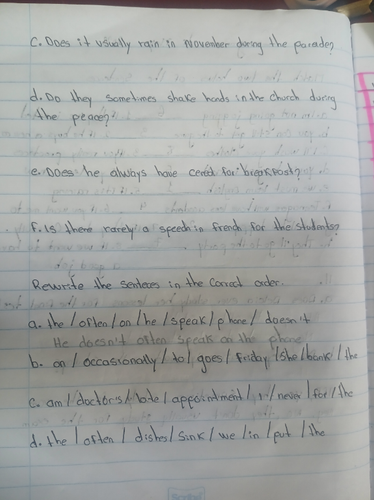 c. Does it usually rain in November during the parade?
d. Do they sometimes shake hands in the church during
the peace?
e. Does he always have cereal for breakfast?
f. Is there rarely a speech in french for the students?
Rewrite the senteces in the correct order.
a. the / often / on / he / speak / phone / doesn't
He doesn't often speak on the phone
b. on / occasionally / to / goes / friday / she / bank / the
c. am / doctor's / late / appointment / I / never / for / the
d. the / often / dishes / sink / we / in / put / the